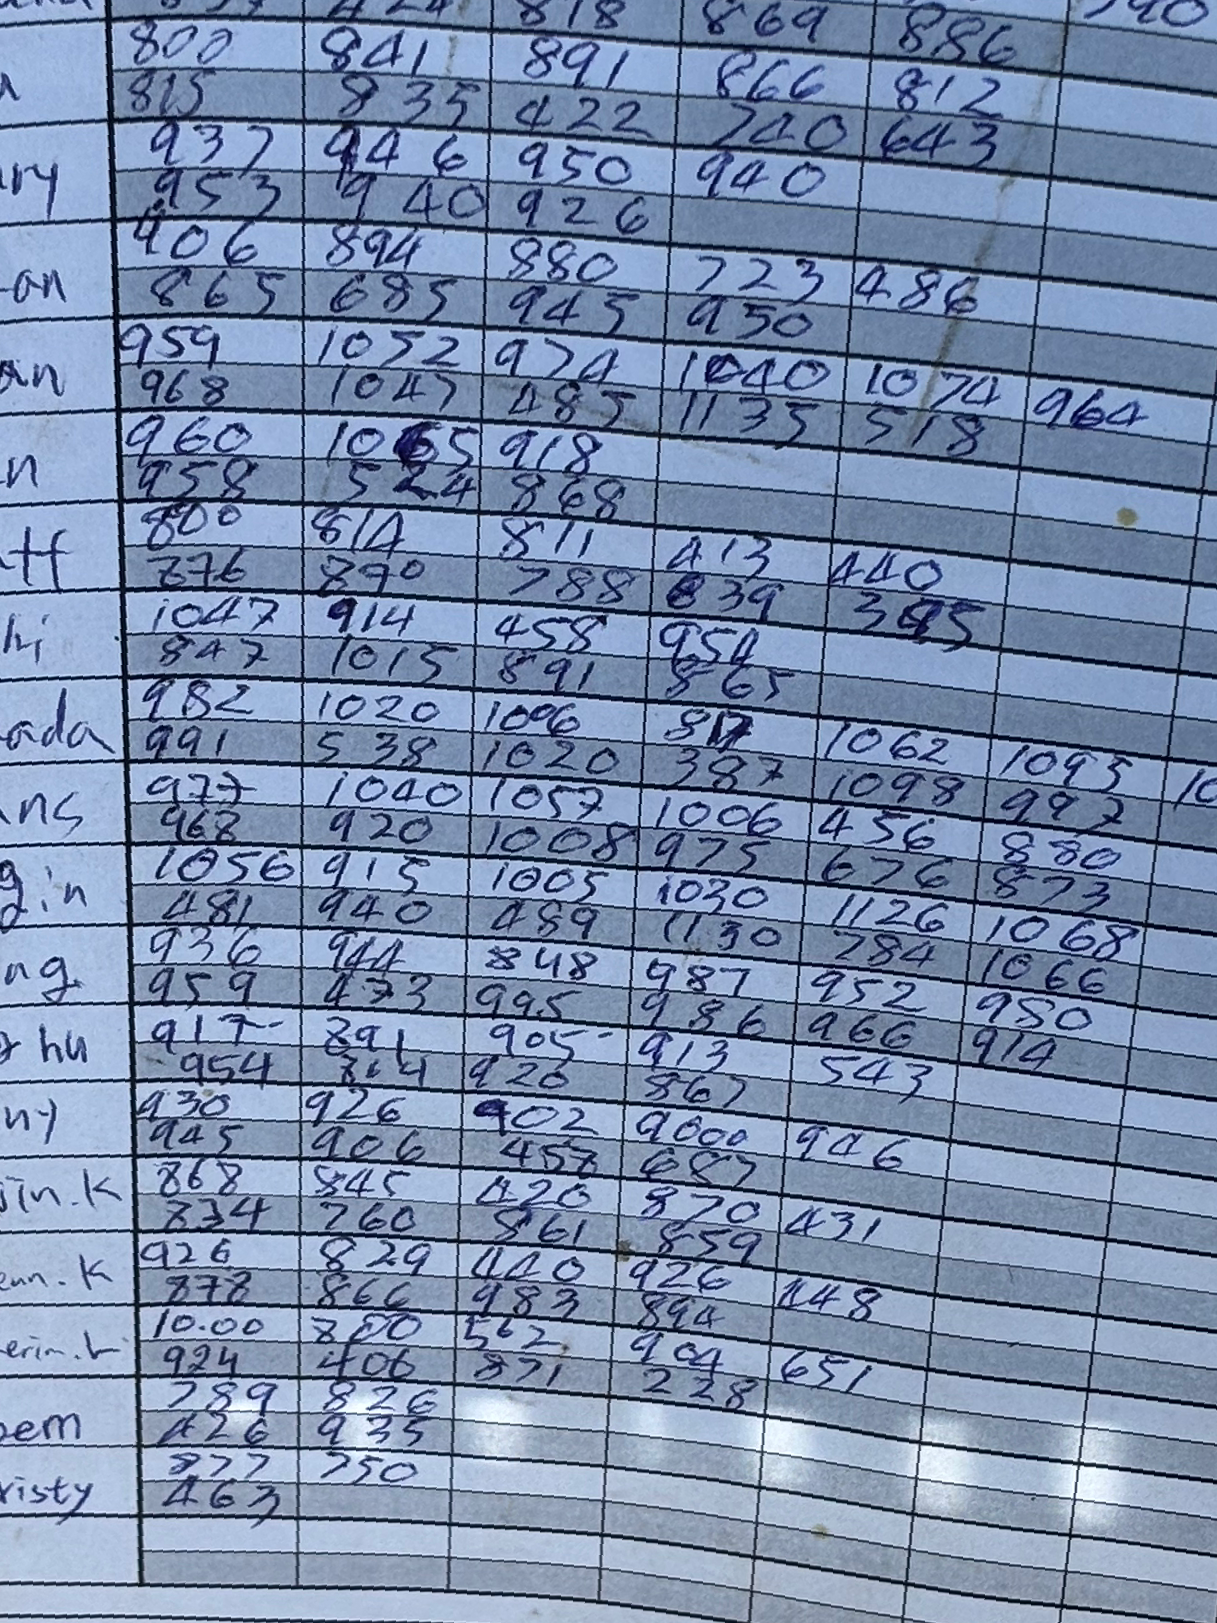 818 869 886
800 841 891 866 812
815 835 422 740 643
937 946 950 940
ry 953 940 926
906 894 880 723 486
an 865 685 945 950
959 1052 974 1040 1074 964
an 968 1047 485 1135 518
960 1065 918
n 958 524 868
800 814 811 413 440
tf 776 890 788 839 395
1047 914 458 954
hi 847 1015 891 865
982 1020 1006 1062 1095 10
ada 991 538 1020 387 1098 997
977 1040 1057 1006 456 880
ns 968 920 1008 975 676 873
1056 915 1005 1030 1126 1068
gin 481 940 489 1130 784 1066
936 944 848 987 952 980
ng 959 473 995 986 966 914
917 891 905 913 543
hu 954 864 920 867
930 926 902 9000 946
ny 945 906 458 687
868 845 420 870 431
jin.K 834 760 861 859
926 829 440 926 448
eun.K 878 866 983 894
10.00 800 562 904 651
erim.L 924 406 871 228
789 826
oem 426 935
877 750
risty 463